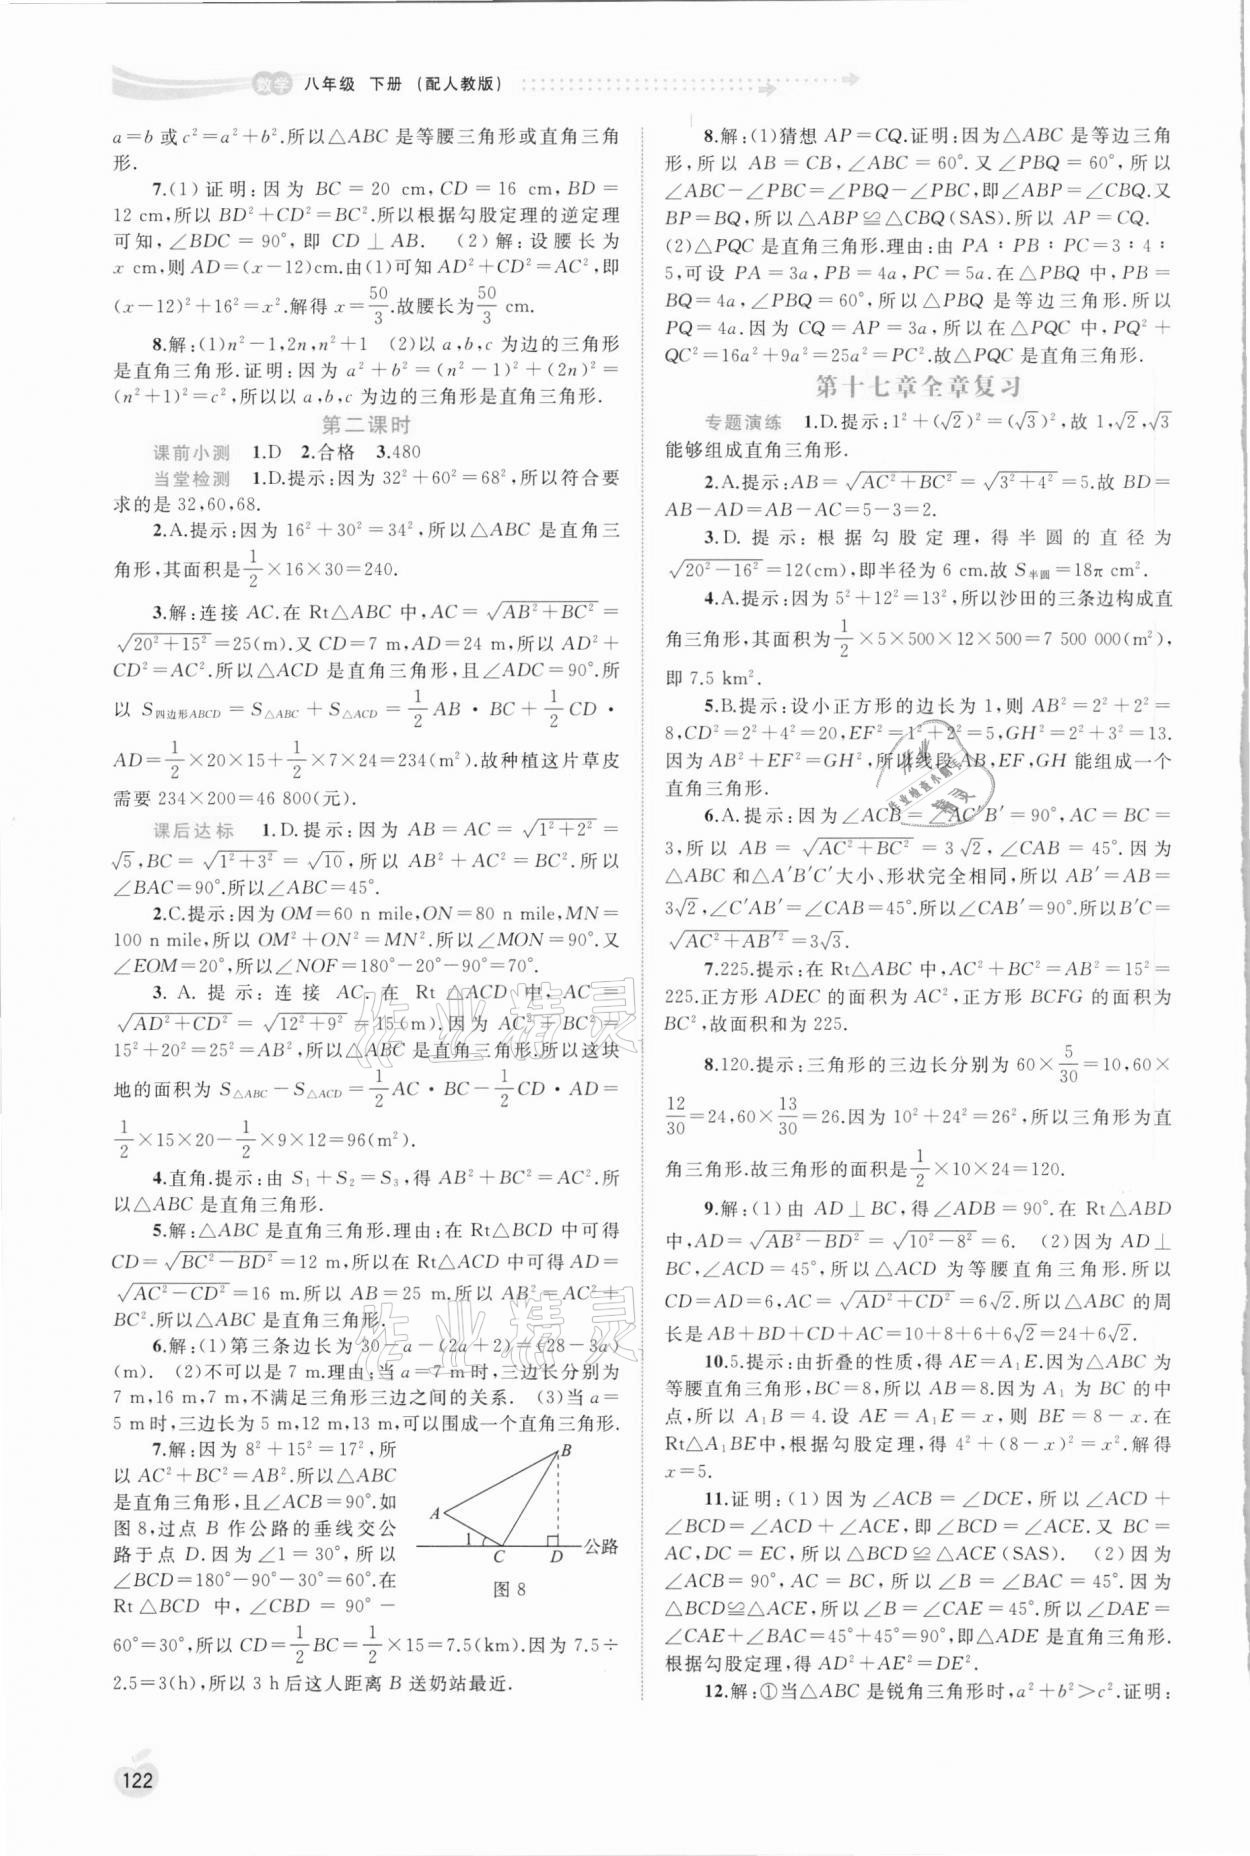 数学 八年级 下册 (配人教版)
a=b或c²=a²+b².所以△ABC是等腰三角形或直角三角
形.
7.(1)证明:因为 BC=20 cm,CD=16 cm,BD=
12 cm,所以BD²+CD²=BC².所以根据勾股定理的逆定理
可知,∠BDC=90°,即 CD⊥AB. (2)解:设腰长为
x cm,则AD=(x-12)cm.由(1)可知AD²+CD²=AC²,即
(x-12)²+16²=x².解得x=50/3.故腰长为50/3 cm.
8.解:(1)n²-1,2n,n²+1 (2)以a,b,c为边的三角形
是直角三角形.证明:因为a²+b²=(n²-1)²+(2n)²=
(n²+1)²=c²,所以以a,b,c为边的三角形是直角三角形.
第二课时
课前小测 1.D 2.合格 3.480
当堂检测 1.D.提示:因为32²+60²=68²,所以符合要
求的是32,60,68.
2.A.提示:因为16²+30²=34²,所以△ABC是直角三
角形,其面积是1/2×16×30=240.
3.解:连接AC.在Rt△ABC中,AC=√(AB²+BC²)=
√(20²+15²)=25(m).又CD=7 m,AD=24 m,所以AD²+
CD²=AC².所以△ACD是直角三角形,且∠ADC=90°.所
以 S四边形ABCD=S△ABC+S△ACD=1/2AB·BC+1/2CD·
AD=1/2×20×15+1/2×7×24=234(m²).故种植这片草皮
需要234×200=46 800(元).
课后达标 1.D.提示:因为AB=AC=√(1²+2²)=
√5,BC=√(1²+3²)=√10,所以AB²+AC²=BC².所以
∠BAC=90°.所以∠ABC=45°.
2.C.提示:因为OM=60 n mile,ON=80 n mile,MN=
100 n mile,所以OM²+ON²=MN².所以∠MON=90°.又
∠EOM=20°,所以∠NOF=180°-20°-90°=70°.
3. A. 提示:连接 AC. 在 Rt△ACD 中,AC=
√(AD²+CD²)=√(12²+9²)=15(m).因为AC²+BC²=
15²+20²=25²=AB²,所以△ABC是直角三角形.所以这块
地的面积为S△ABC-S△ACD=1/2AC·BC-1/2CD·AD=
1/2×15×20-1/2×9×12=96(m²).
4.直角.提示:由S₁+S₂=S₃,得AB²+BC²=AC².所
以△ABC是直角三角形.
5.解:△ABC是直角三角形.理由:在Rt△BCD中可得
CD=√(BC²-BD²)=12 m,所以在Rt△ACD中可得AD=
√(AC²-CD²)=16 m.所以AB=25 m.所以AB²=AC²+
BC².所以△ABC是直角三角形.
6.解:(1)第三条边长为30-a-(2a+2)=(28-3a)
(m). (2)不可以是7 m.理由:当a=7 m时,三边长分别为
7 m,16 m,7 m,不满足三角形三边之间的关系. (3)当a=
5 m时,三边长为5 m,12 m,13 m,可以围成一个直角三角形.
7.解:因为8²+15²=17²,所
以AC²+BC²=AB².所以△ABC
是直角三角形,且∠ACB=90°.如
图8,过点B作公路的垂线交公
路于点D.因为∠1=30°,所以
∠BCD=180°-90°-30°=60°.在
Rt△BCD中,∠CBD=90°-
60°=30°,所以CD=1/2BC=1/2×15=7.5(km).因为7.5÷
2.5=3(h),所以3 h后这人距离B送奶站最近.
B
A
1
C
D
公路
图8
122
8.解:(1)猜想AP=CQ.证明:因为△ABC是等边三角
形,所以AB=CB,∠ABC=60°.又∠PBQ=60°,所以
∠ABC-∠PBC=∠PBQ-∠PBC,即∠ABP=∠CBQ.又
BP=BQ,所以△ABP≌△CBQ(SAS).所以AP=CQ.
(2)△PQC是直角三角形.理由:由PA∶PB∶PC=3∶4∶
5,可设PA=3a,PB=4a,PC=5a.在△PBQ中,PB=
BQ=4a,∠PBQ=60°,所以△PBQ是等边三角形.所以
PQ=4a.因为CQ=AP=3a,所以在△PQC中,PQ²+
QC²=16a²+9a²=25a²=PC².故△PQC是直角三角形.
第十七章全章复习
专题演练 1.D.提示:1²+(√2)²=(√3)²,故1,√2,√3
能够组成直角三角形.
2.A.提示:AB=√(AC²+BC²)=√(3²+4²)=5.故BD=
AB-AD=AB-AC=5-3=2.
3.D.提示:根据勾股定理,得半圆的直径为
√(20²-16²)=12(cm),即半径为6 cm.故S半圆=18π cm².
4.A.提示:因为5²+12²=13²,所以沙田的三条边构成直
角三角形,其面积为1/2×5×500×12×500=7 500 000(m²),
即7.5 km².
5.B.提示:设小正方形的边长为1,则AB²=2²+2²=
8,CD²=2²+4²=20,EF²=1²+2²=5,GH²=2²+3²=13.
因为AB²+EF²=GH²,所以线段AB,EF,GH能组成一个
直角三角形.
6.A.提示:因为∠ACB=∠AC′B′=90°,AC=BC=
3,所以AB=√(AC²+BC²)=3√2,∠CAB=45°.因为
△ABC和△A′B′C′大小、形状完全相同,所以AB′=AB=
3√2,∠C′AB′=∠CAB=45°.所以∠CAB′=90°.所以B′C=
√(AC²+AB′²)=3√3.
7.225.提示:在Rt△ABC中,AC²+BC²=AB²=15²=
225.正方形ADEC的面积为AC²,正方形BCFG的面积为
BC²,故面积和为225.
8.120.提示:三角形的三边长分别为60×5/30=10,60×
12/30=24,60×13/30=26.因为10²+24²=26²,所以三角形为直
角三角形.故三角形的面积是1/2×10×24=120.
9.解:(1)由AD⊥BC,得∠ADB=90°.在Rt△ABD
中,AD=√(AB²-BD²)=√(10²-8²)=6. (2)因为AD⊥
BC,∠ACD=45°,所以△ACD为等腰直角三角形.所以
CD=AD=6,AC=√(AD²+CD²)=6√2.所以△ABC的周
长是AB+BD+CD+AC=10+8+6+6√2=24+6√2.
10.5.提示:由折叠的性质,得AE=A₁E.因为△ABC为
等腰直角三角形,BC=8,所以AB=8.因为A₁为BC的中
点,所以A₁B=4.设AE=A₁E=x,则BE=8-x.在
Rt△A₁BE中,根据勾股定理,得4²+(8-x)²=x².解得
x=5.
11.证明:(1)因为∠ACB=∠DCE,所以∠ACD+
∠BCD=∠ACD+∠ACE,即∠BCD=∠ACE.又BC=
AC,DC=EC,所以△BCD≌△ACE(SAS). (2)因为
∠ACB=90°,AC=BC,所以∠B=∠BAC=45°.因为
△BCD≌△ACE,所以∠B=∠CAE=45°.所以∠DAE=
∠CAE+∠BAC=45°+45°=90°,即△ADE是直角三角形.
根据勾股定理,得AD²+AE²=DE².
12.解:①当△ABC是锐角三角形时,a²+b²>c².证明:
作业精灵
作业精灵